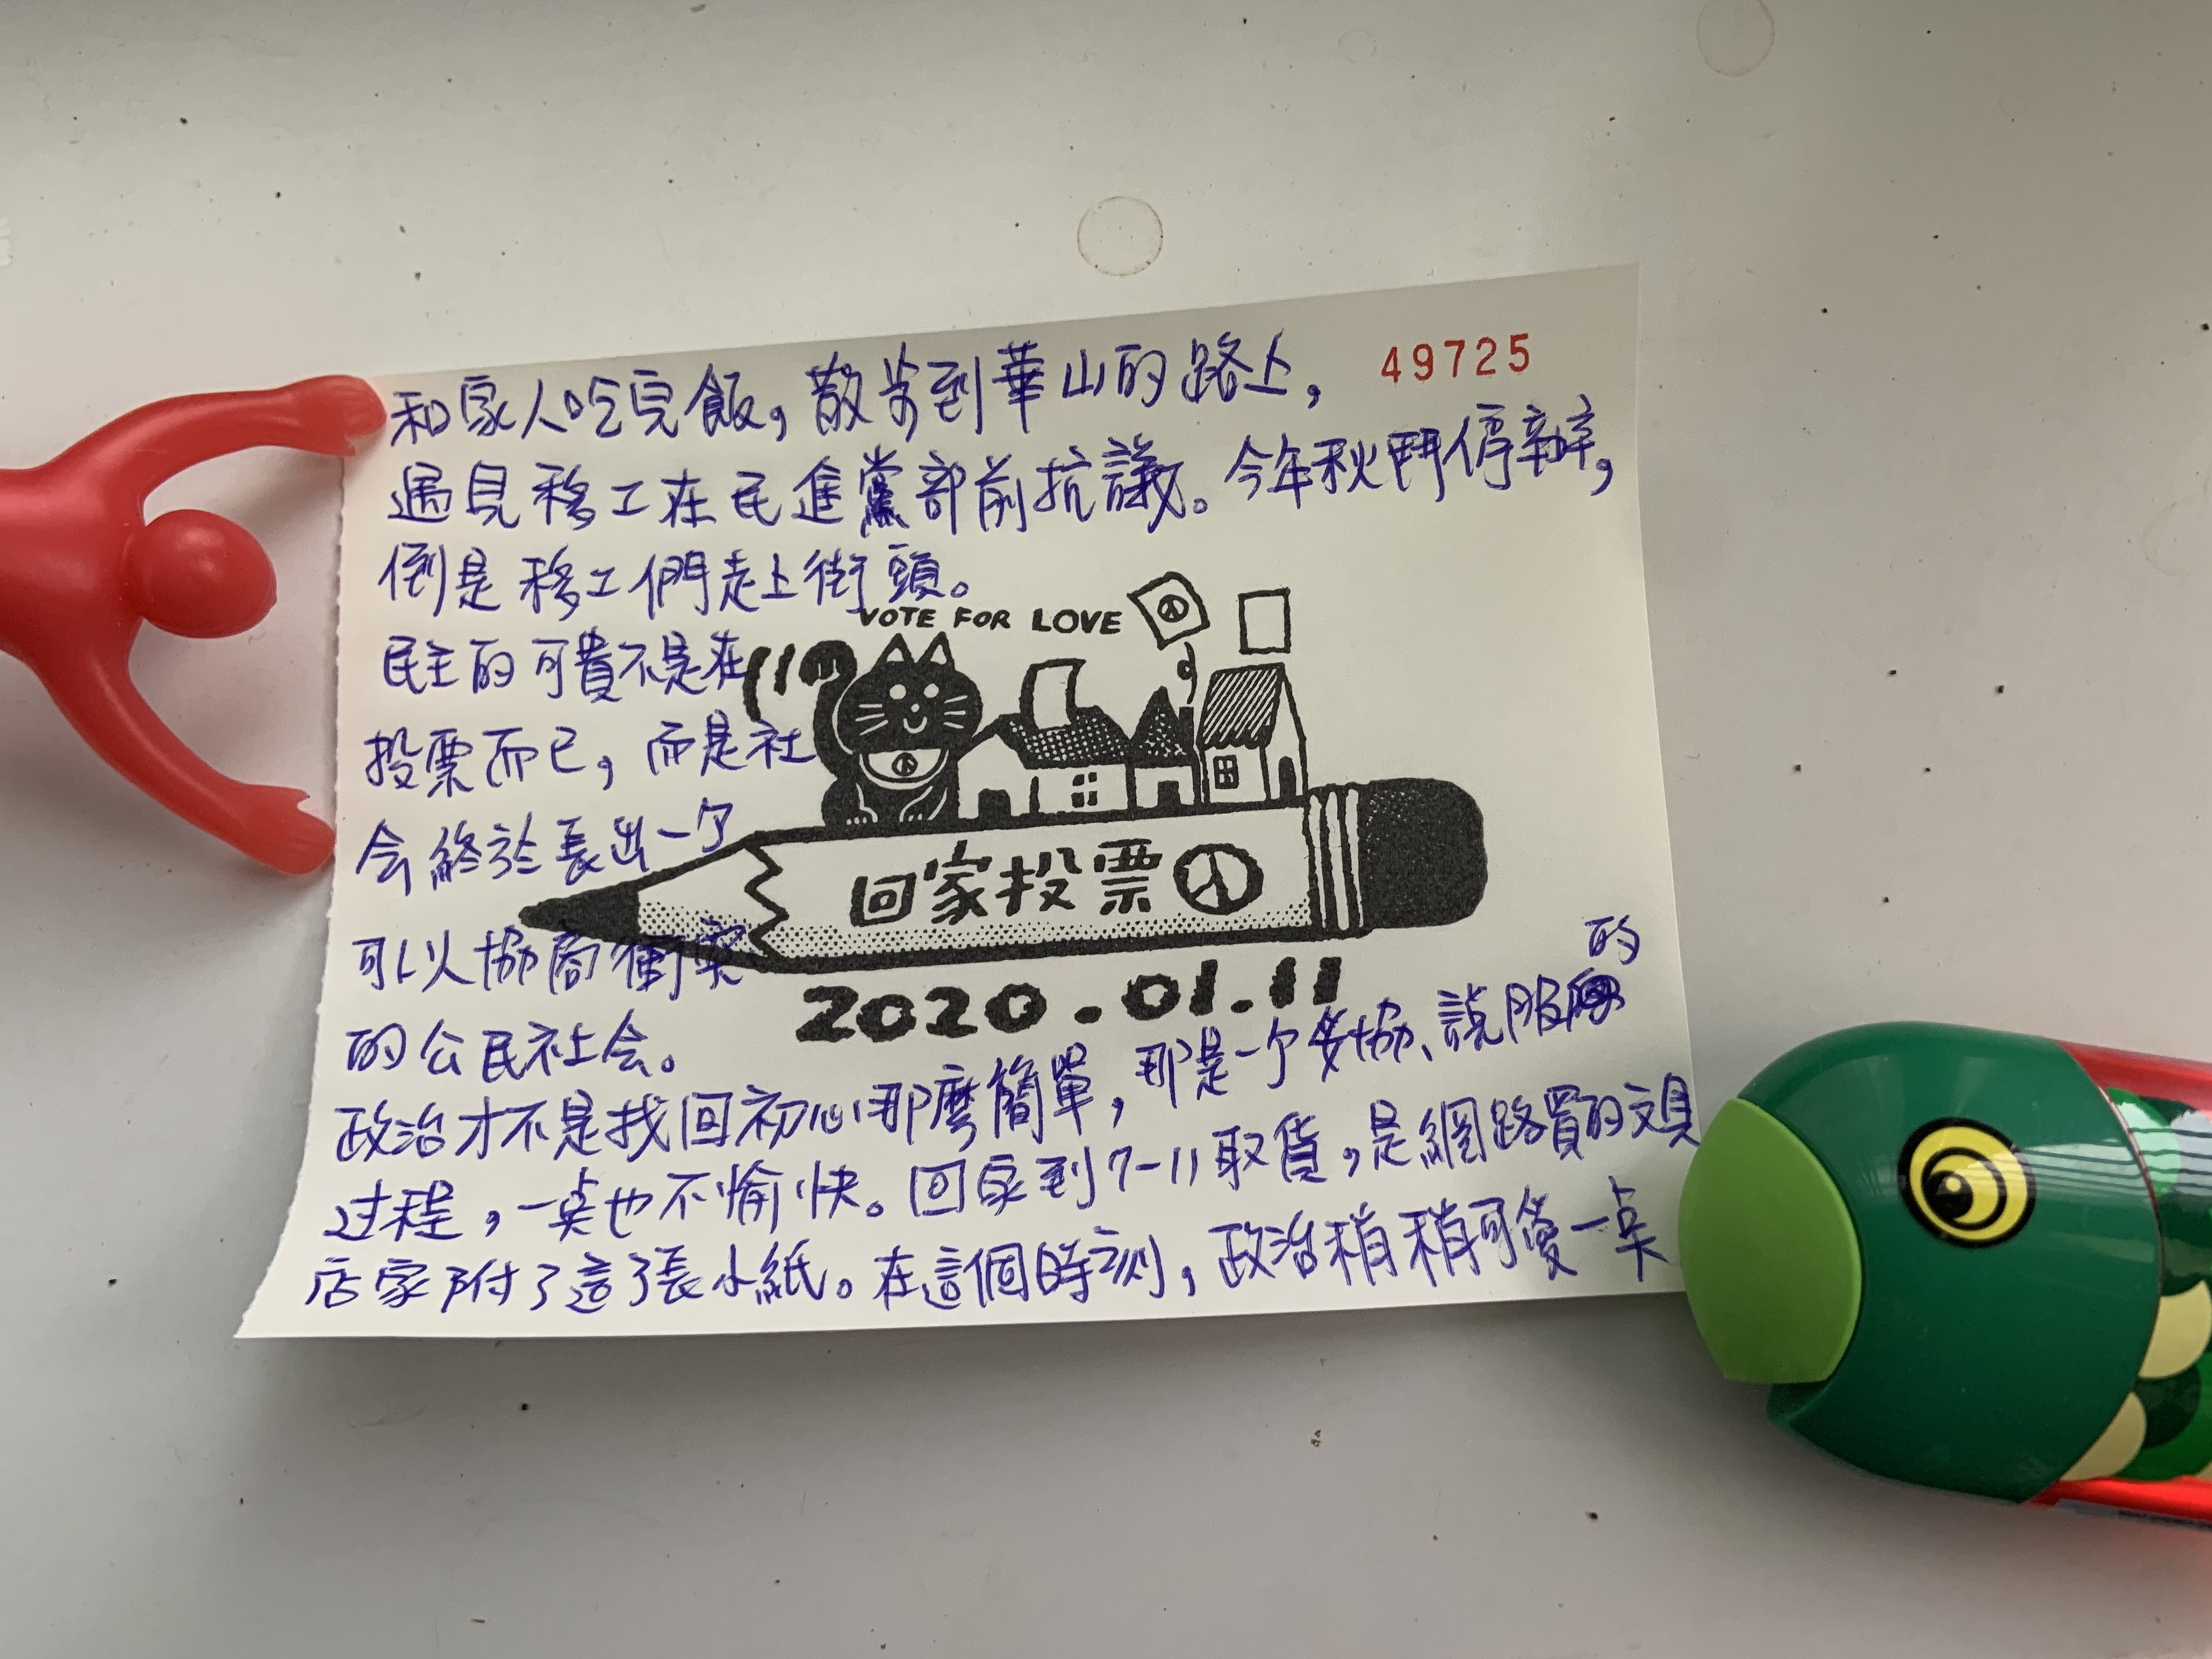 和家人吃完飯，散步到華山的路上，
49725
遇見移工在民進黨部前抗議。今年秋鬥停辦，
倒是移工們走上街頭。
VOTE FOR LOVE
民主的可貴不是在
投票而已，而是社
会終於長出一个
回家投票
可以協商衝突
2020.01.11
的公民社会。
政治才不是找回初心那麼簡單，那是一个妥協、說服的
过程，一点也不愉快。回家到7-11取貨，是網路買的文具
店家附了這了張小紙。在這個時刻，政治稍稍可愛一点